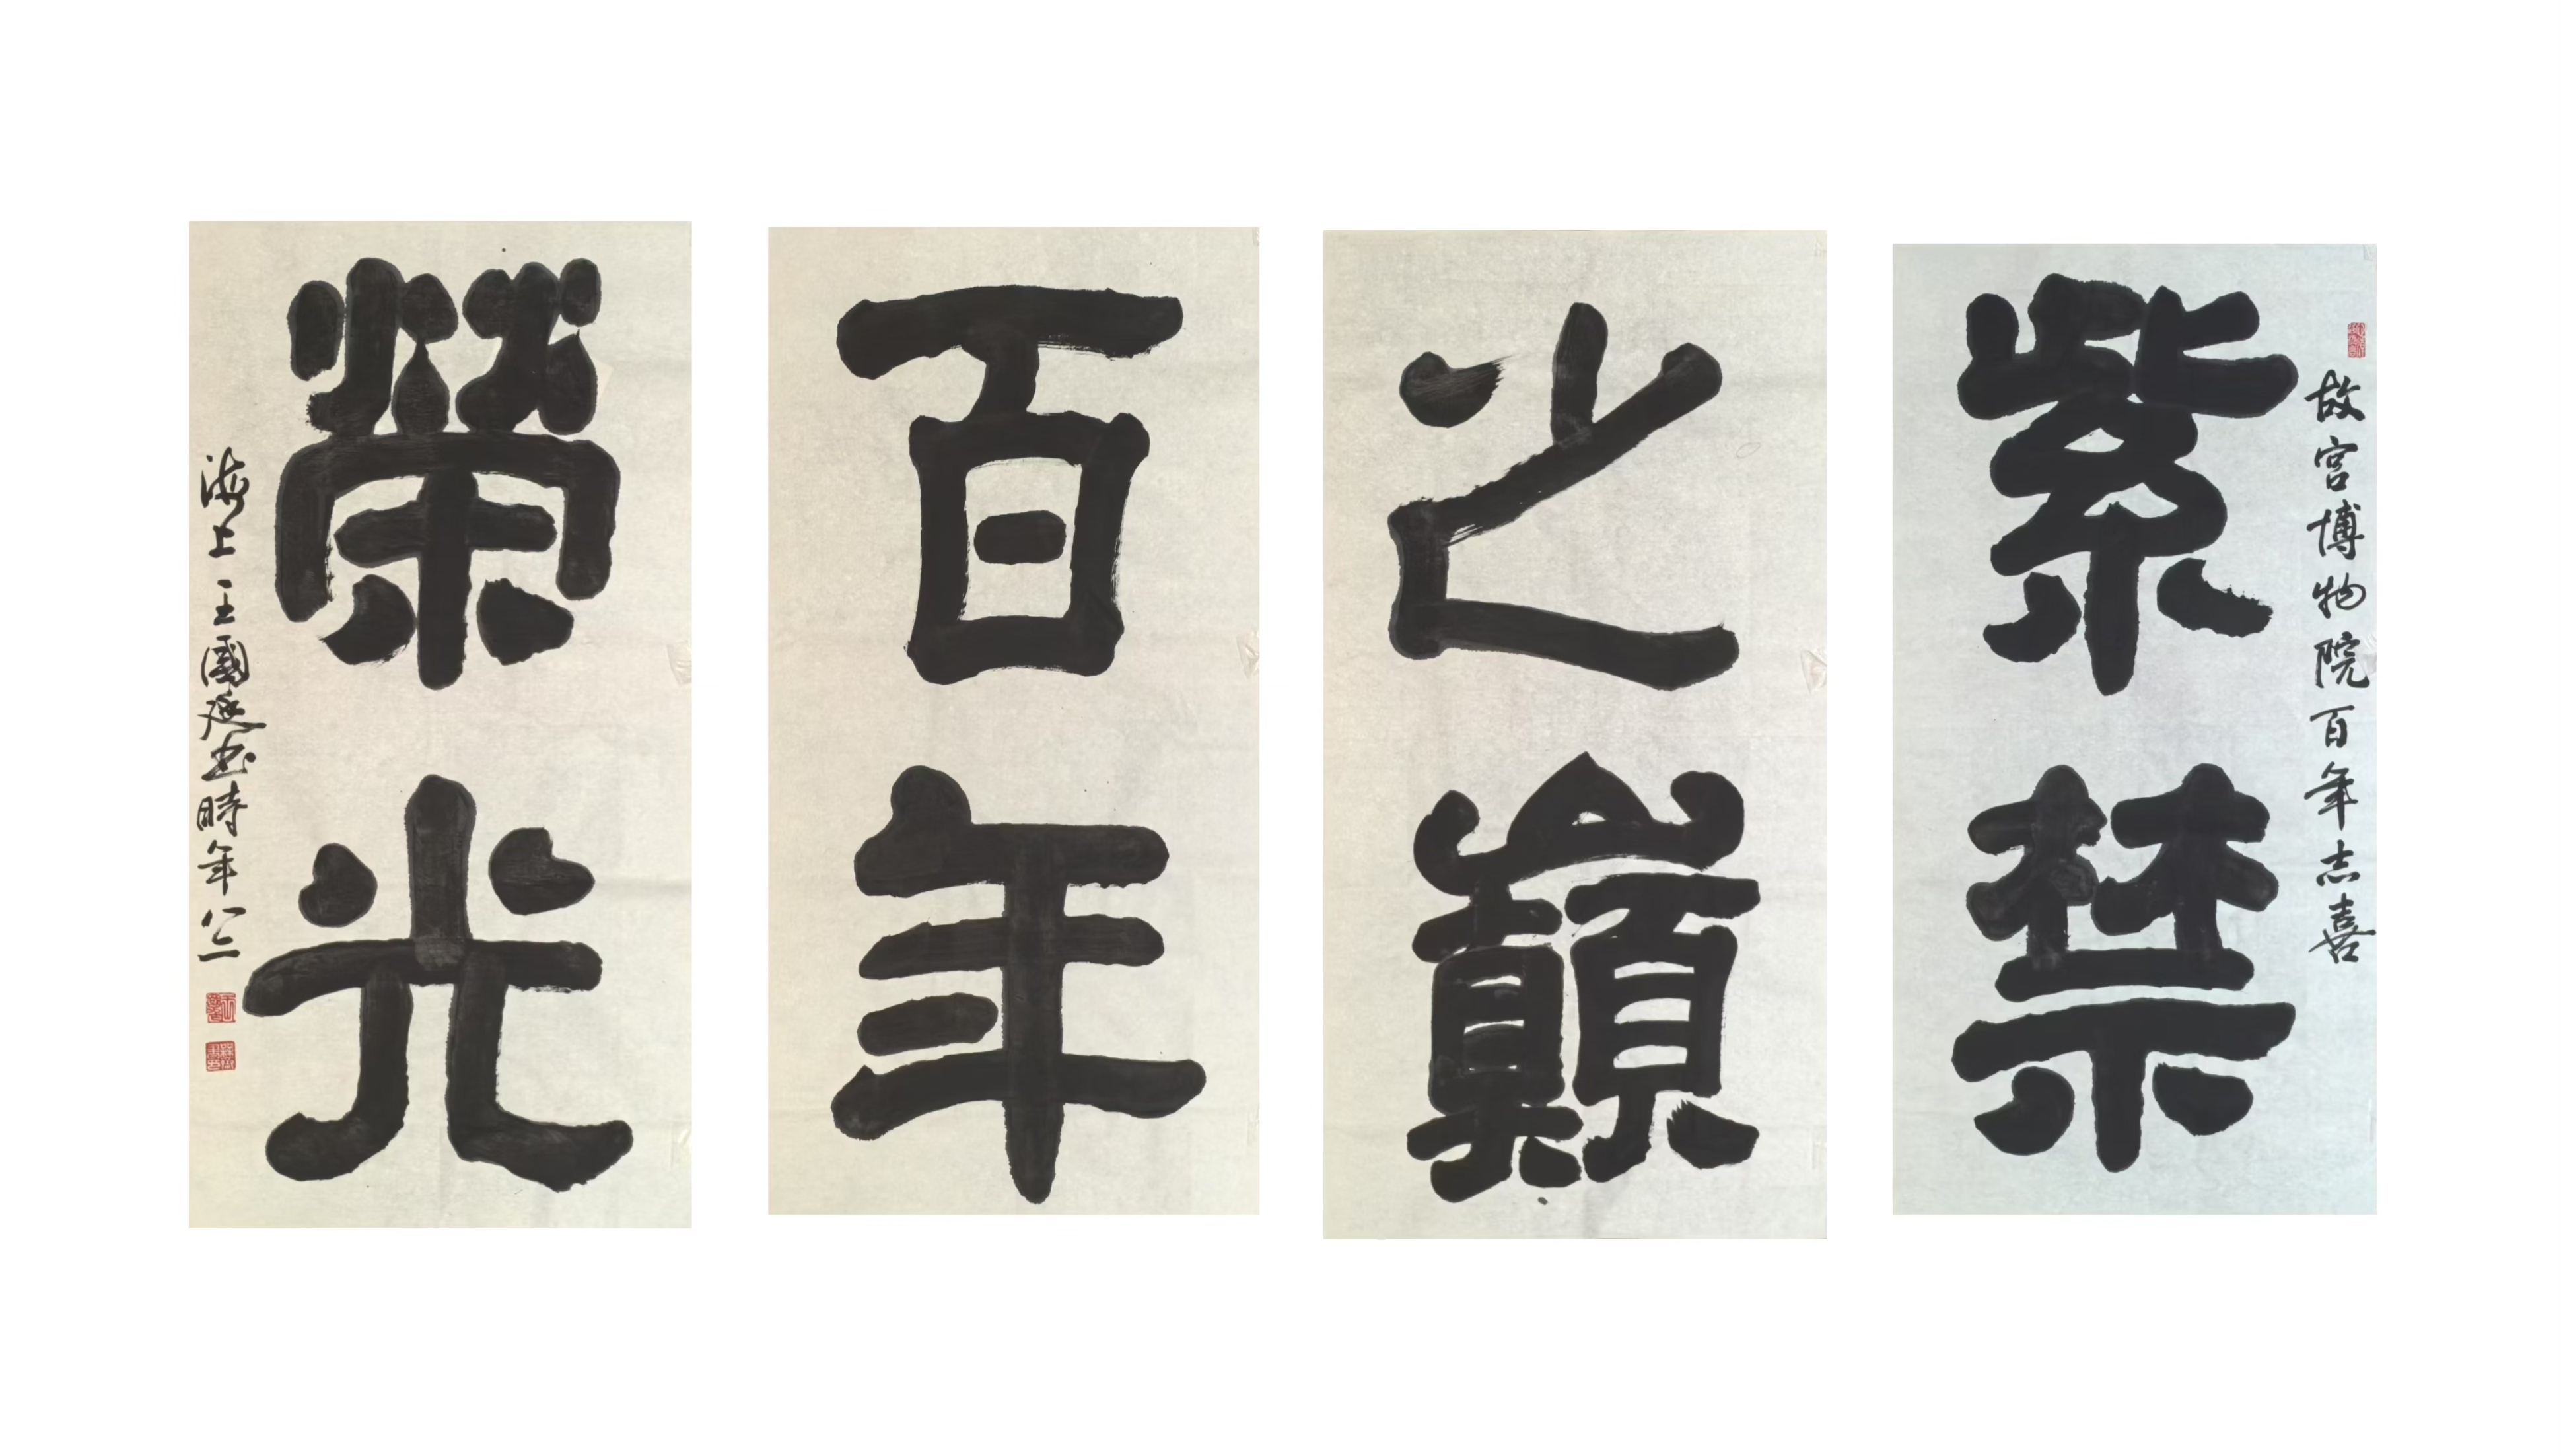 故宫博物院百年志喜
紫禁
之巔
百年
榮光
海上王國廷書時年八二